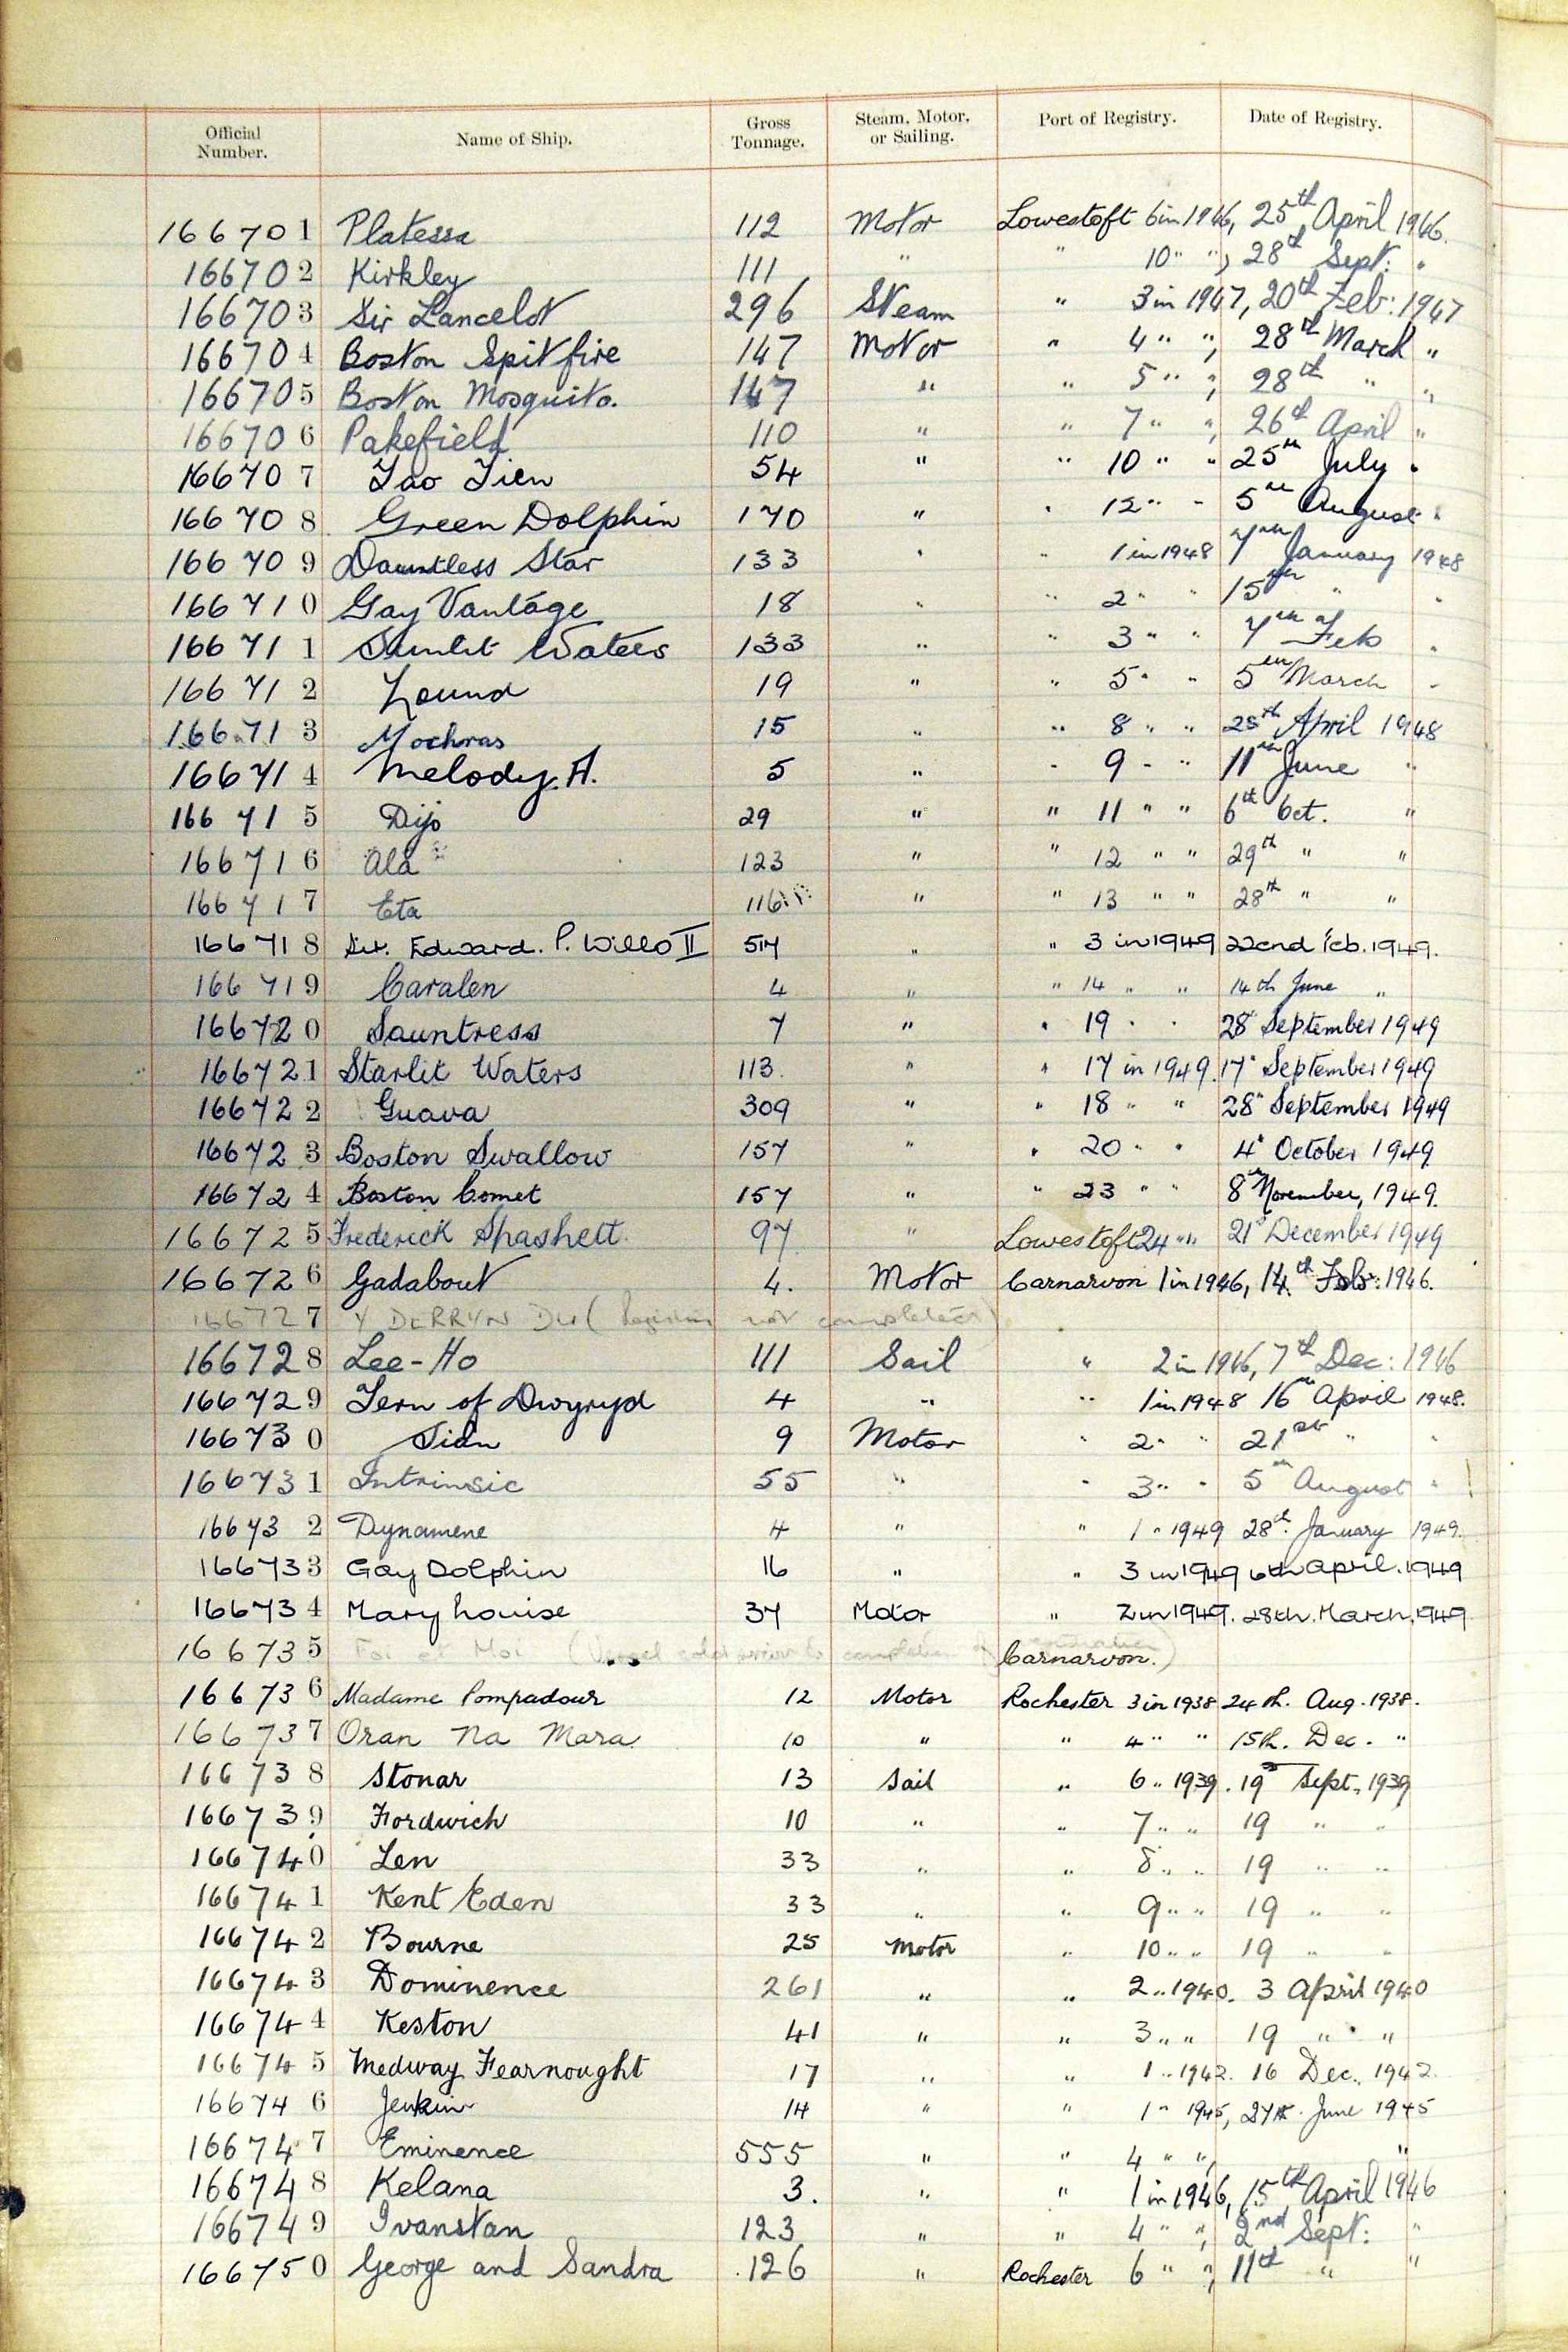 Official Number. Name of Ship. Gross Tonnage. Steam, Motor, or Sailing. Port of Registry. Date of Registry.
166701 Platessa 112 Motor Lowestoft 6 in 1946, 25th April 1946.
166702 Kirkley 111 " " 10 " ", 28th Sept: "
166703 Sir Lancelot 296 Steam " 3 in 1947, 20th Feb: 1947
166704 Boston Spitfire 147 Motor " 4 " ", 28th March "
166705 Boston Mosquito. 147 " " 5 " ", 28th " "
166706 Pakefield 110 " " 7 " ", 26th April "
166707 Tao Tien 54 " " 10 " " 25th July "
166708 Green Dolphin 170 " " 12 " " 5th August "
166709 Dauntless Star 133 " " 1 in 1948 7th January 1948
166710 Gay Vantage 18 " " 2 " " 15th " "
166711 Sunlit Waters 133 " " 3 " " 7th Feb "
166712 Lound 19 " " 5 " " 5th March "
166713 Mochras 15 " " 8 " " 28th April 1948
166714 Melody A. 5 " " 9 " " 11th June "
166715 Dijo 29 " " 11 " " 6th Oct. "
166716 Ala 123 " " 12 " " 29th " "
166717 Eta 116 " " 13 " " 28th " "
166718 Sir. Edward. P. Wills II 517 " " 3 in 1949 22cnd Feb. 1949.
166719 Caralen 4 " " 14 " " 14th June "
166720 Sauntress 7 " " 19 " " 28" September 1949
166721 Starlit Waters 113. " " 17 in 1949. 17" September 1949
166722 Guava 309 " " 18 " " 28" September 1949
166723 Boston Swallow 157 " " 20 " " 4" October 1949
166724 Boston Comet 157 " " 23 " " 8th November, 1949.
166725 Frederick Spashett 97 " Lowestoft 24 " " 21st December 1949
166726 Gadabout 4. Motor Carnarvon 1 in 1946, 14th Feb: 1946.
166727 Y DERRYN DU ( not completed)
166728 Lee-Ho 111 Sail " 2 in 1946, 7th Dec: 1946
166729 Tern of Dwyryd 4 " " 1 in 1948 16th April 1948.
166730 Sian 9 Motor " 2 " " 21st " "
166731 Intrinsic 55 " " 3 " " 5th August "
166732 Dynamene 4 " " 1 " 1949 28th January 1949.
166733 Gay Dolphin 16 " " 3 in 1949 6th April. 1949
166734 Mary Louise 37 Motor " 2 in 1949. 28th. March. 1949
166735 Toi et Moi (Vessel sold prior to completion of Carnarvon.)
166736 Madame Pompadour 12 Motor Rochester 3 in 1938 24th. Aug. 1938.
166737 Oran Na Mara 10 " " 4 " " 15th. Dec. "
166738 Stonar 13 Sail " 6 " 1939. 19 Sept. 1939
166739 Fordwich 10 " " 7 " " 19 " "
166740 Len 33 " " 8 " " 19 " "
166741 Kent Eden 33 " " 9 " " 19 " "
166742 Bourne 25 Motor " 10 " " 19 " "
166743 Dominence 261 " " 2 " 1940. 3 April 1940
166744 Keston 41 " " 3 " " 19 " "
166745 Medway Fearnought 17 " " 1 " 1942. 16 Dec. 1942.
166746 Jenkin 14 " " 1 " 1945, 27th. June 1945
166747 Eminence 555 " " 4 " ", "
166748 Kelana 3. " " 1 in 1946, 15th April 1946
166749 Ivanstan 123 " " 4 " ", 2nd Sept: "
166750 George and Sandra 126 " Rochester 6 " ", 11th " "